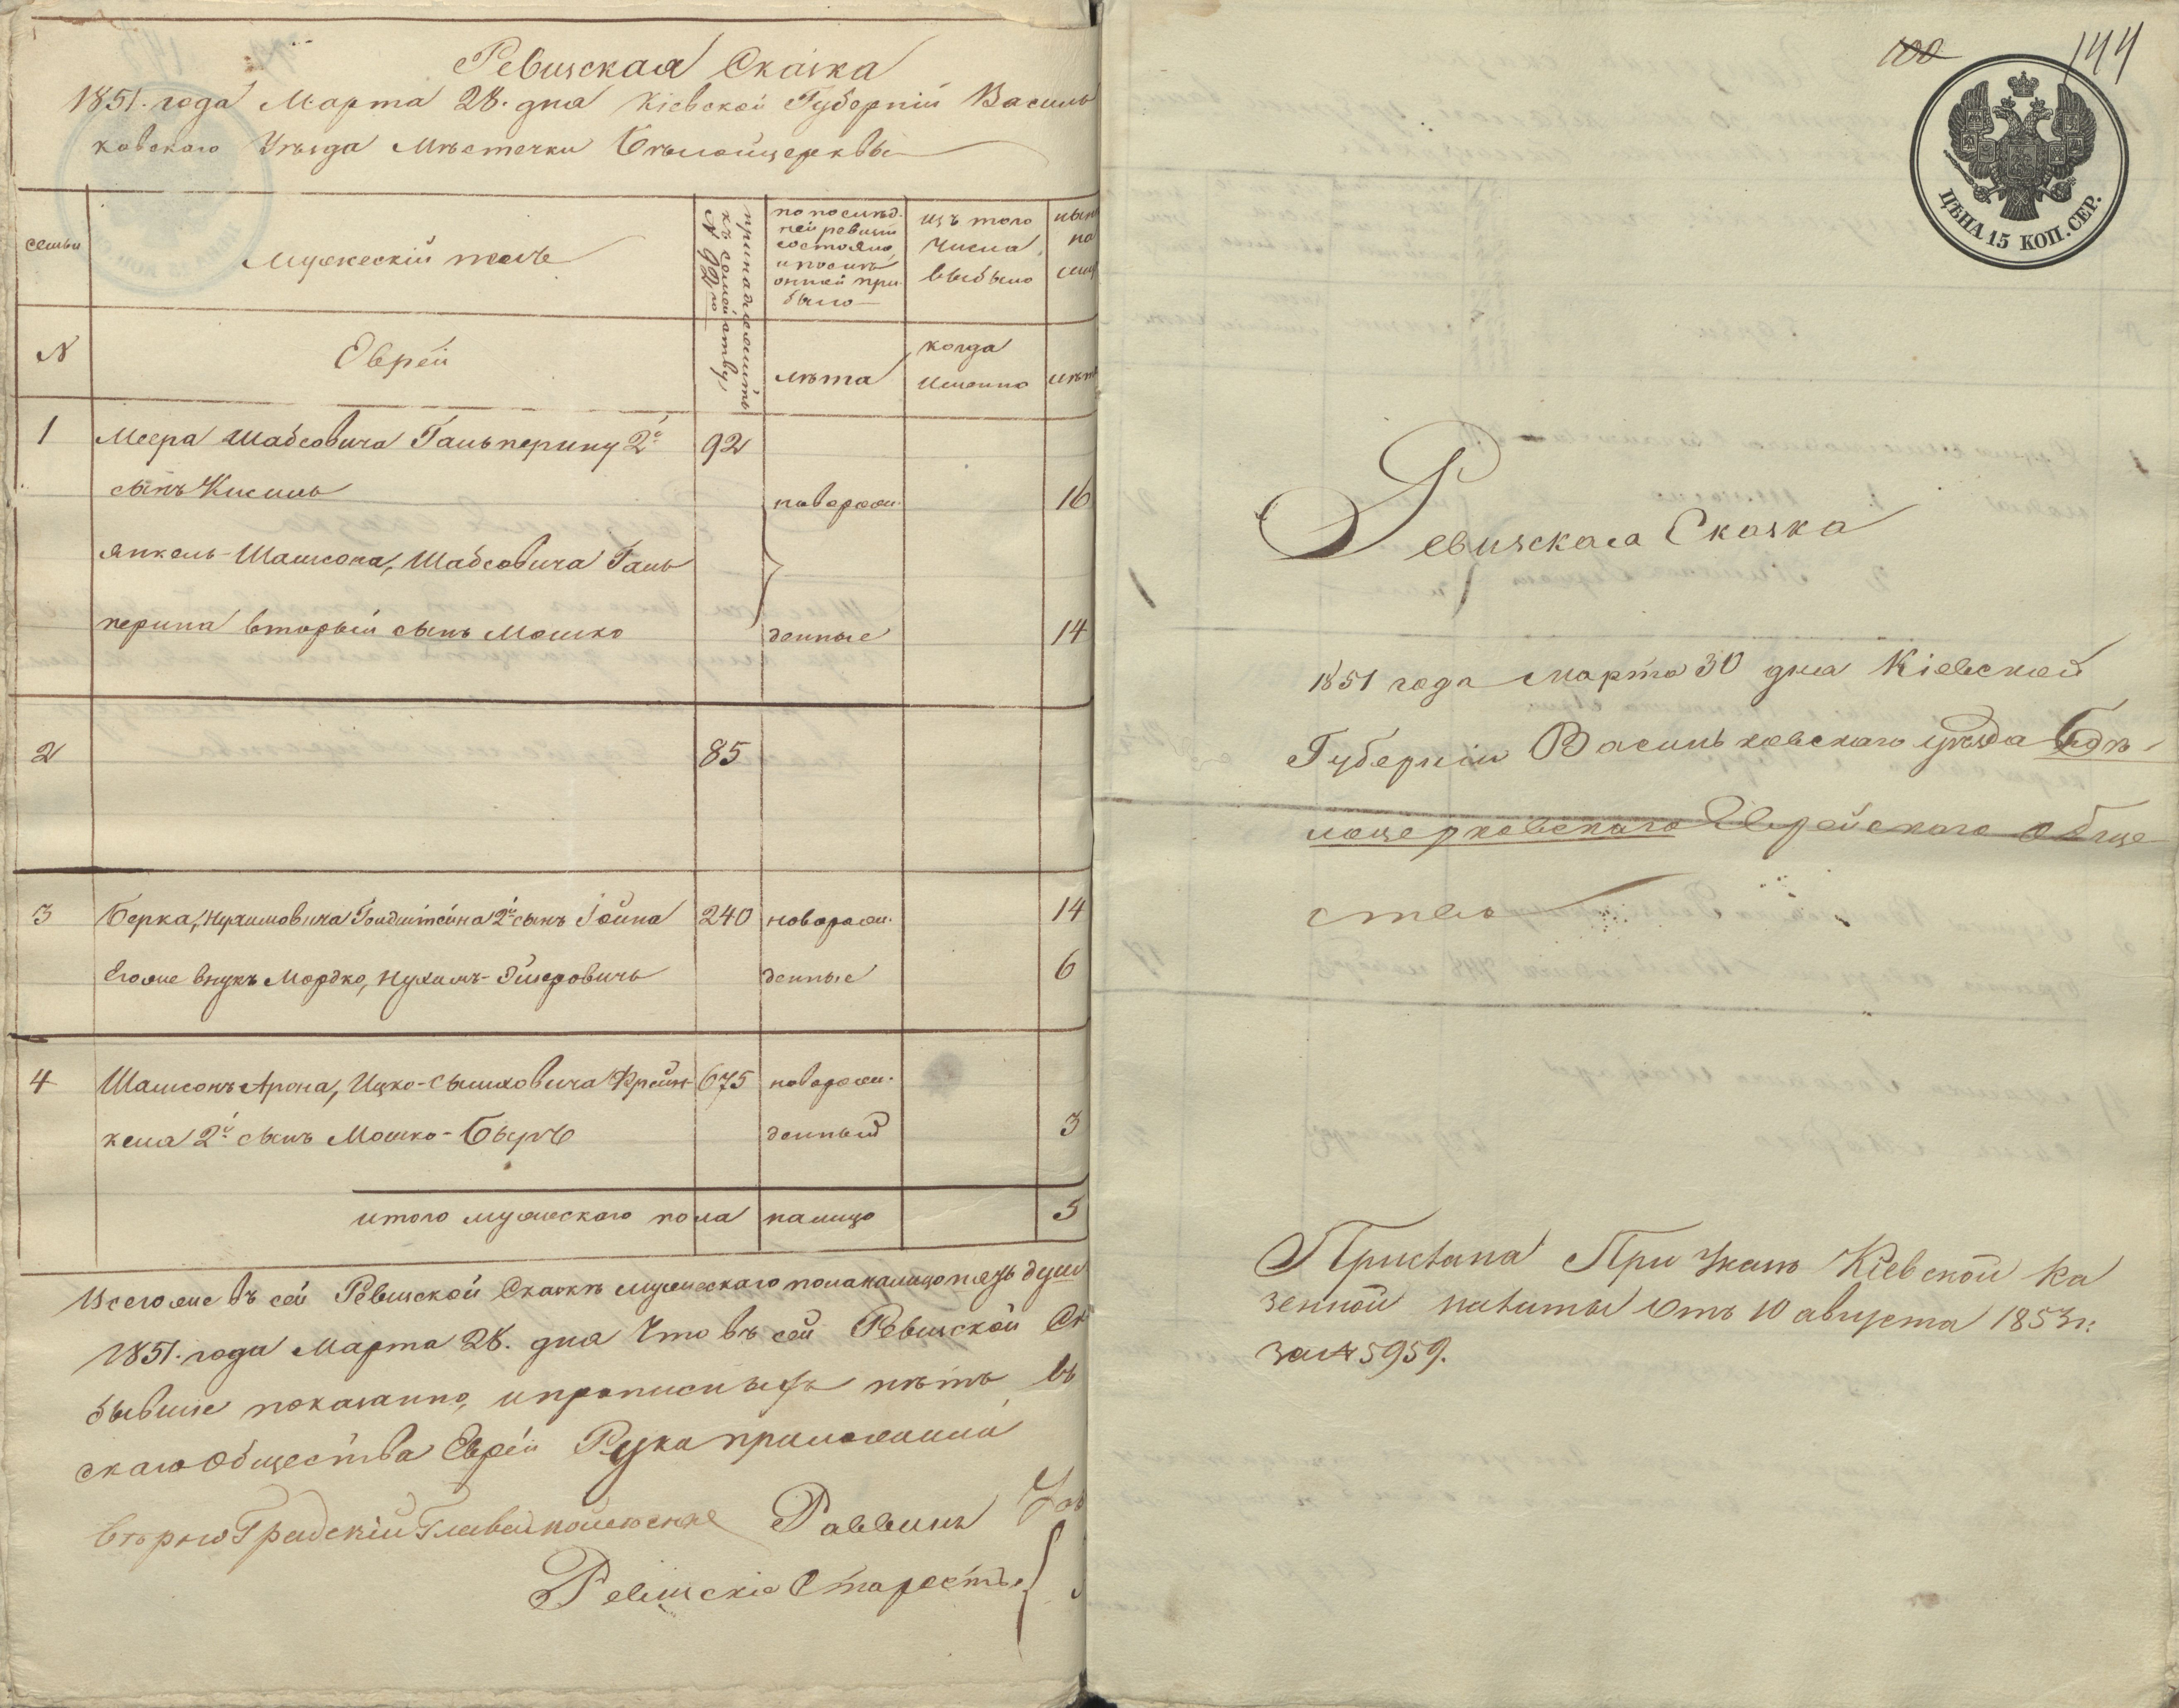 Ревизская Сказка
1851. года Марта 28. дня Кіевской Губерніи Василь
ковского Уѣзда Мѣстечки Бѣлойцерквы
семьи
Мужескій полъ
принадлежитъ
къ семейству
N 92го
по послѣд.
ней ревизіи
состояло
и послѣ
оной при
было
изъ того
числа
выбыло
нын
на
лиц
N
Еврей
лѣта
когда
именно
лѣт
1 Меера Шабсовича Гальперину 2й 92
сынъ Кисиль новорож. 16
Янкель-Шамсона, Шабсовича Галь
перина вторый сынъ Мошко денные 14
2 85
3 Берка, Нухимовича Голдштейна 2й сынъ Іойна 240 новорож. 14
Егоже внукъ Мордко, Нухимъ-Эйзеровичъ денные 6
4 Шамсонъ Арона, Ицко-Сымховича Френ- 675 новорож.
келя 2й сынъ Мошко-Беръ денный 3
итого мужескаго пола налицо 5
Всего же въ сей Ревизской Сказкѣ мужескаго пола налицо пять душ
1851. года Марта 28. дня Что въ сей Ревизской Ск
бывшіе показанно, и прописныхъ нѣтъ въ
скаго Общества Еврей Руки приложили
Вѣрно Градскій Глава
Раввинъ
Ревизскіе Старосты
100 144
ЦѢНА 15 КОП. СЕР.
Ревизская Сказка
1851 года Марта 30 дня Кіевской
Губерніи Васильковскаго уѣзда Бѣ-
лоцерковскаго Еврейского обще
ства
Прислана При Указѣ Кіевской Ка
зенной палаты Отъ 10 августа 1853 г.
за N 5959.